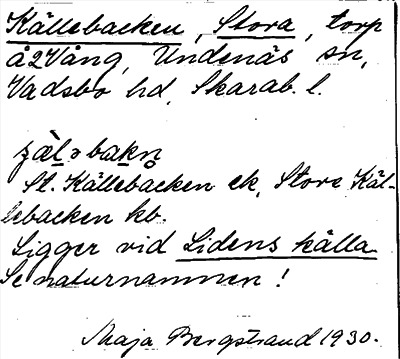 Källebacken, Stora, torp
å 2 Vång, Undenäs sn,
Vadsbo hd, Skarab. l.
St. Källebacken ek, Stora Käl-
lebacken kb.
Ligger vid Lidens källa
Se naturnamnen!
Maja Bergstrand 1930.